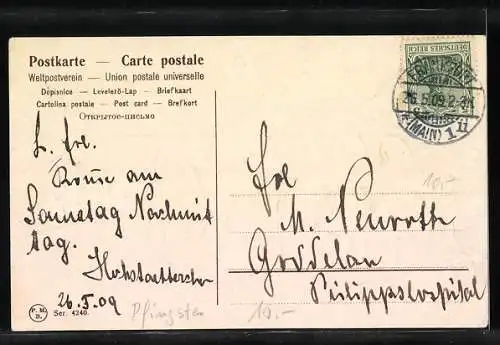 Postkarte — Carte postale
Weltpostverein — Union postale universelle
Dopisnice — Levelező-Lap — Briefkaart
Cartolina postale — Post card — Brefkort
Открытое-письмо
DEUTSCHES REICH
26.5.09.2-3N
(MAIN) 1
L. Frl.
Komme am
Sonnatag Nachmit
tag.
26.5.09
Pfingsten
Frl
M. Neuroth
Goddelau
Philippshospital
10.-
10.-
P. M.
B.
Ser. 4240.